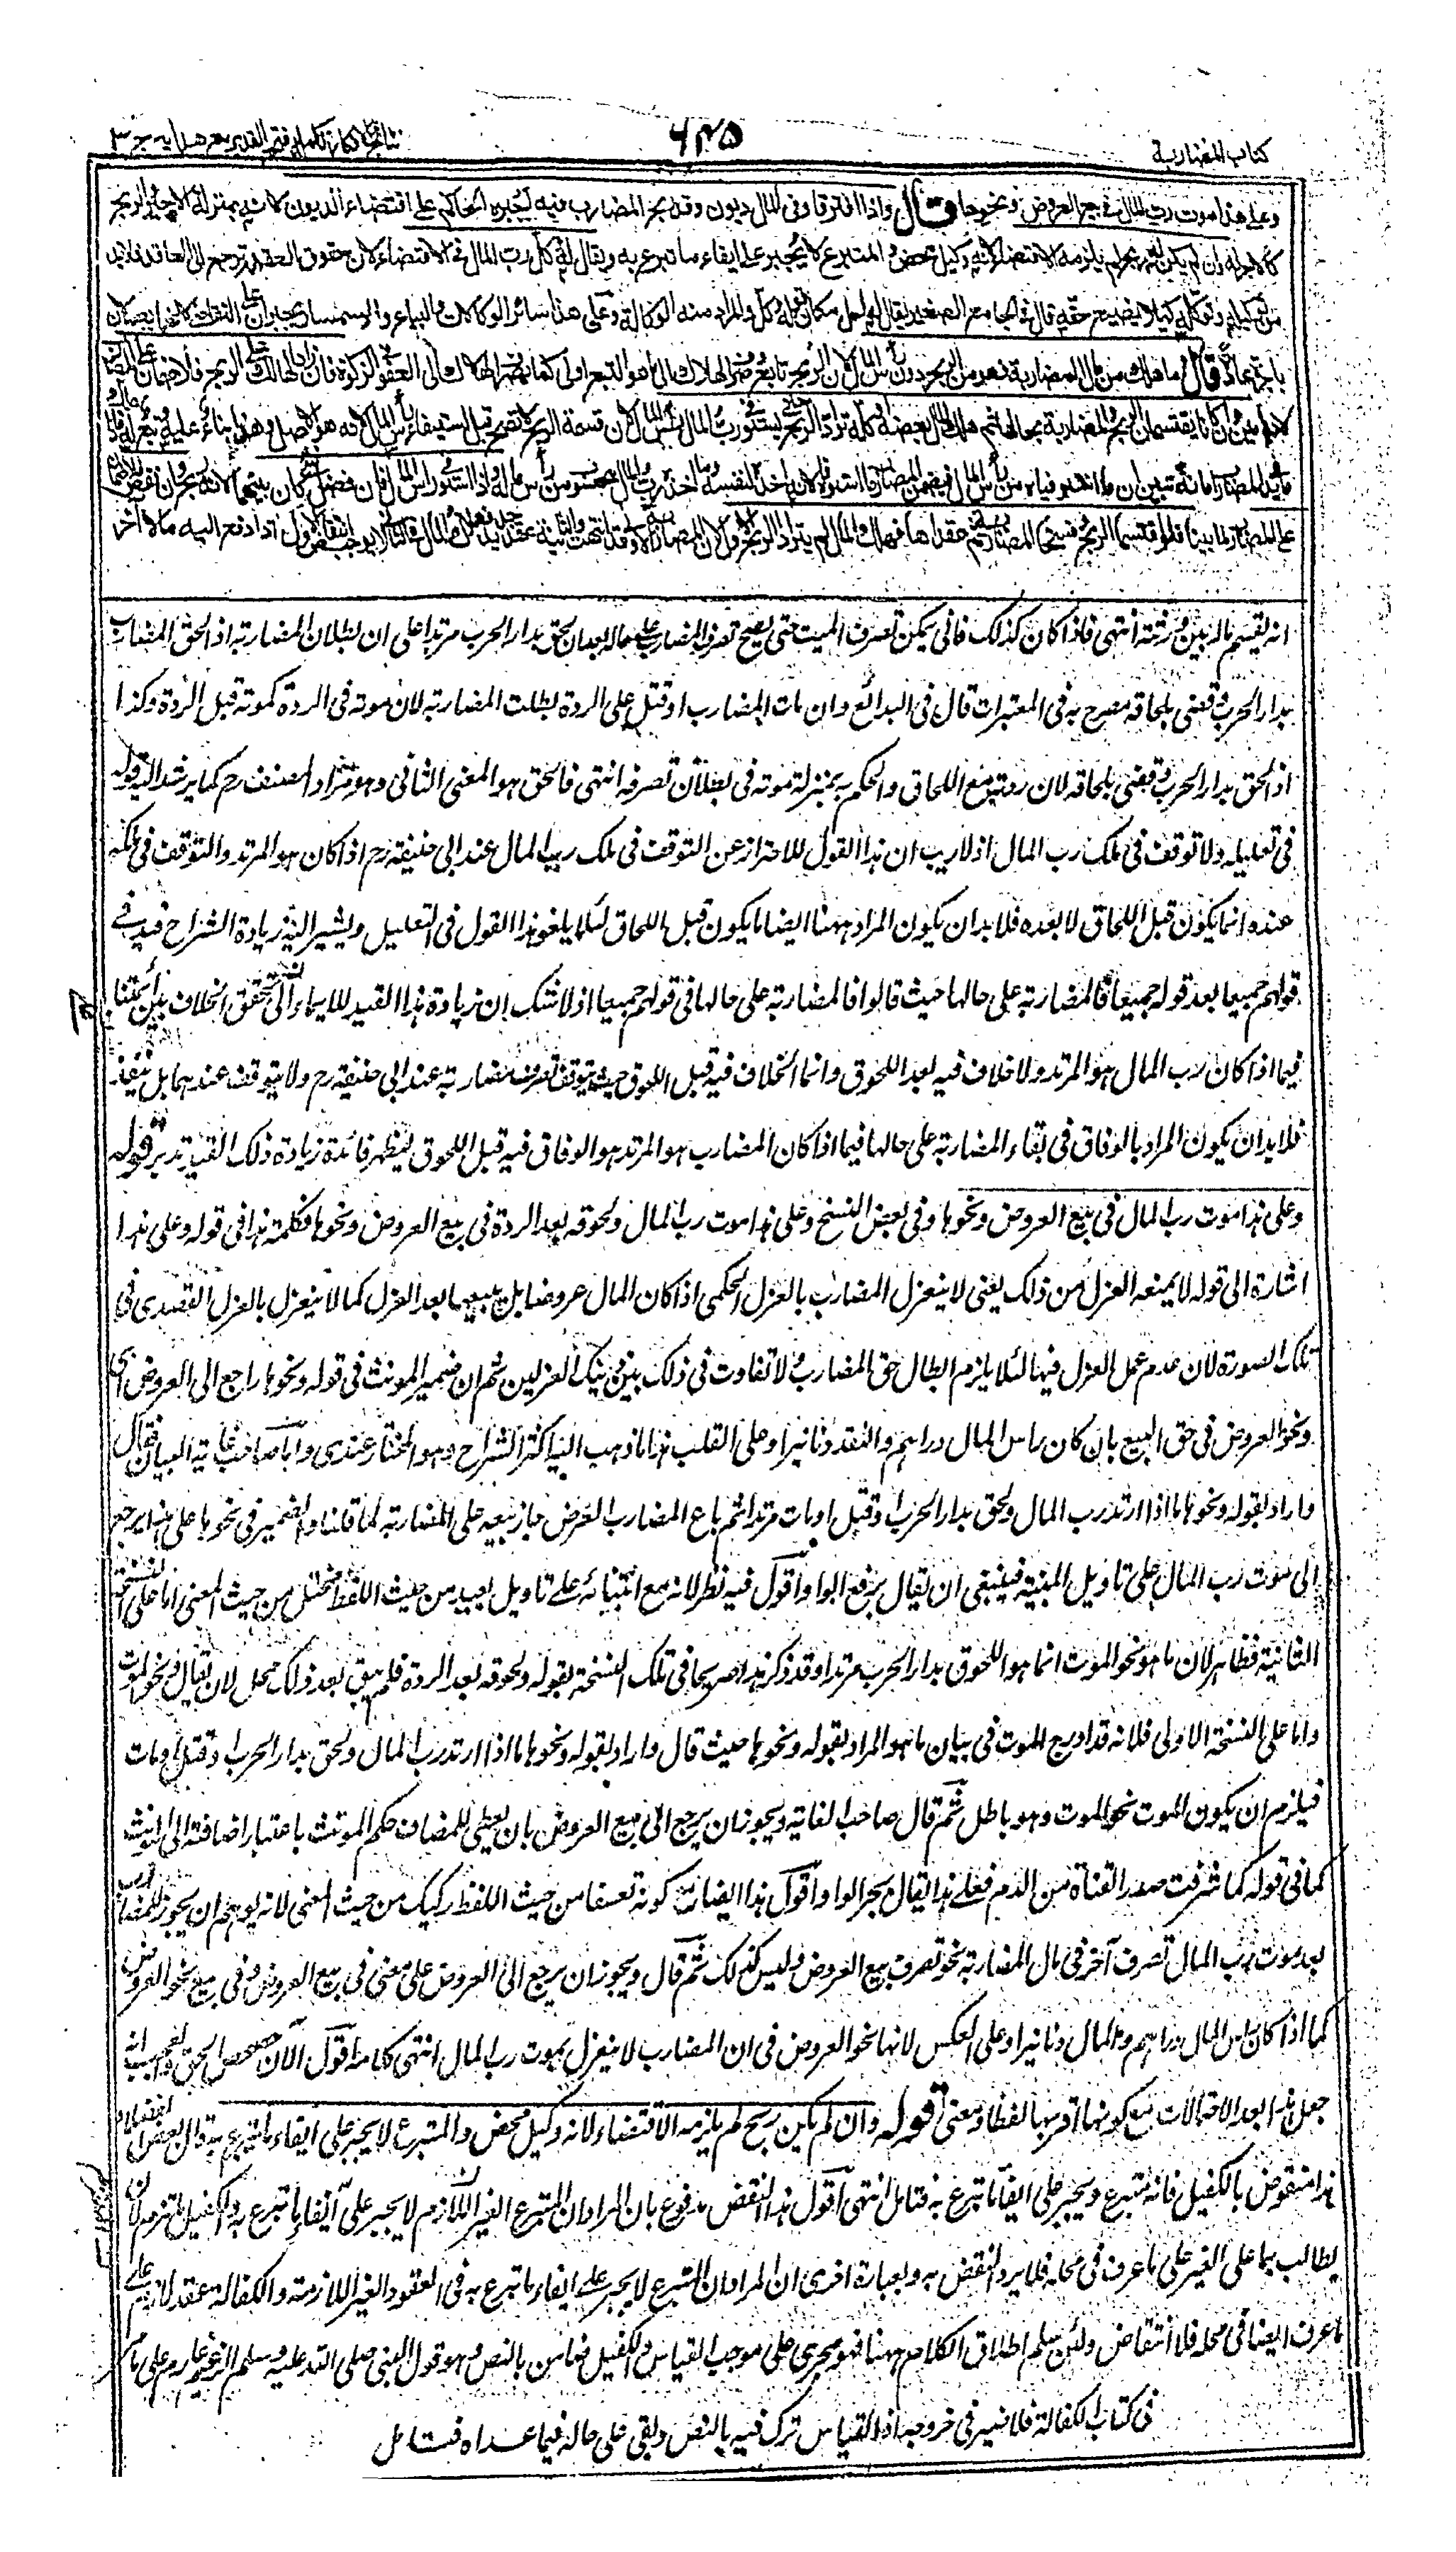 كتاب المضاربة
٦٤٥
نتائج الافكار تكملة فتح القدير مع هداية ج ٣
وعلى هذا موت رب المال في بيع العروض ونحوها قال واذا افترقا وفى المال ديون وقد ربح المضارب فيه اجبره الحاكم على اقتضاء الديون لانه بمنزلة الاجير والربح
كالاجر له وان لم يكن له ربح لم يلزمه الاقتضاء لانه وكيل محض والمتبرع لا يجبر على ايفاء ما تبرع به ويقال له وكل رب المال فى الاقتضاء لان حقوق العقد ترجع الى العاقد فلا بد
من توكيله وتوكله كيلا يضيع حقه قال فى الجامع الصغير يقال له احل مكان قوله وكل والمراد منه الوكالة وعلى هذا سائر الوكالات والبياع والسمسار يجبران على التقاضى لانهما يعملان
باجرة عادة قال وما هلك من مال المضاربة فهو من الربح دون رأس المال لان الربح تابع وصرف الهلاك الى ما هو التبع اولى كما يصرف الهلاك الى العفو فى الزكوة فان زاد الهالك على الربح فلا ضمان على المضارب
لانه امين وان كانا يقتسمان الربح والمضاربة بحالها ثم هلك المال بعضه او كله ترادا الربح حتى يستوفى رب المال رأس المال لان قسمة الربح لا تصح قبل استيفاء رأس المال لانه هو الاصل وهذا بناء عليه وتبع له فاذا هلك
ما فى يد المضارب امانة تبين ان ما اخذاه من رأس المال فيضمن المضارب ما استوفاه لانه اخذه لنفسه وما اخذه رب المال محسوب من رأس ماله واذا استوفى رأس المال فان فضل شئ كان بينهما لانه ربح وان نقص فلا ضمان
على المضارب لما بينا فلو اقتسما الربح وفسخا المضاربة ثم عقداها فهلك المال لم يترادا الربح الاول لان المضاربة الاولى قد انتهت والثانية عقد جديد فهلاك المال فى الثانى لا يوجب انتقاض الاول كما اذا دفع اليه مالا آخر
انه يقسم ماله بين ورثته انتهى فاذا كان كذلك فانى يمكن تصرف الميت حتى يصح تصرف المضارب على ماله بعد ان لحق بدار الحرب مرتدا على ان بطلان المضاربة اذا لحق المضارب
بدار الحرب وقضى بلحاقه مصرح به فى المعتبرات قال فى البدائع وان مات المضارب او قتل على الردة بطلت المضاربة لان موته فى الردة كموته قبل الردة وكذا
اذا لحق بدار الحرب وقضى بلحاقه لان ردته مع اللحاق والحكم به بمنزلة موته فى بطلان تصرفه انتهى فالحق هو المعنى الثانى وهو مراد المصنف رح كما يرشد اليه قوله
فى تعليله ولا توقف فى ملك رب المال اذ لا ريب ان هذا القول للاحتراز عن التوقف فى ملك رب المال عند ابى حنيفة رح اذا كان هو المرتد والتوقف فى ملكه
عنده انما يكون قبل اللحاق لا بعده فلا بد ان يكون المراد ههنا ايضا ما يكون قبل اللحاق لئلا يلغو هذا القول فى التعليل ويشير اليه زيادة الشراح قيد فى
قولهم جميعا بعد قوله جميعا فالمضاربة على حالها حيث قالوا فالمضاربة على حالها فى قولهم جميعا اذ لا شك ان زيادة هذا القيد للايماء الى تحقق الخلاف بين أئمتنا
فيما اذا كان رب المال هو المرتد ولا خلاف فيه بعد اللحوق وانما الخلاف فيه قبل اللحوق حيث يتوقف تصرف مضاربه عند ابى حنيفة رح ولا يتوقف عندهما بل ينفذ
فلا بد ان يكون المراد بالوفاق فى بقاء المضاربة على حالها فيما اذا كان المضارب هو المرتد هو الوفاق فيه قبل اللحوق ليظهر فائدة زيادة ذلك القيد تدبر قوله
وعلى هذا موت رب المال فى بيع العروض ونحوها وفى بعض النسخ وعلى هذا موت رب المال ولحوقه بعد الردة فى بيع العروض ونحوها فكلمة هذا فى قوله وعلى هذا
اشارة الى قوله لا يمنعه العزل من ذلك يعنى لا ينعزل المضارب بالعزل الحكمى اذا كان المال عروضا بل يبيعها بعد العزل كما لا ينعزل بالعزل القصدى فى
تلك الصورة لان عدم عمل العزل فيها لئلا يلزم ابطال حق المضارب ولا تفاوت فى ذلك بين ذينك العزلين ثم ان ضمير المونث فى قوله ونحوها راجع الى العروض اى
ونحو العروض فى حق البيع بان كان راس المال دراهم والنقد دنانير او على القلب هذا ما ذهب اليه اكثر الشراح وهو المختار عندى واما صاحب غاية البيان فقال
واراد بقوله ونحوها ما اذا ارتد رب المال ولحق بدار الحرب او قتل او مات مرتدا ثم باع المضارب العرض جاز بيعه على المضاربة لما قلنا والضمير فى نحوها على هذا يرجع
الى موت رب المال على تاويل المنية فينبغى ان يقال برفع الواو اقول فيه نظر لانه مع ابتنائه على تاويل بعيد من حيث اللفظ مختل من حيث المعنى اما على النسخة
الثانية فظاهر لان ما هو نحو الموت انما هو اللحوق بدار الحرب مرتدا وقد ذكر هذا صريحا فى تلك النسخة بقوله ولحوقه بعد الردة فلم يبق بعد ذلك محل لان يقال ونحو الموت
واما على النسخة الاولى فلانه قد ادرج الموت فى بيان ما هو المراد بقوله ونحوها حيث قال واراد بقوله ونحوها ما اذا ارتد رب المال ولحق بدار الحرب او قتل او مات
فيلزم ان يكون الموت نحو الموت وهو باطل ثم قال صاحب الغاية ويجوز ان يرجع الى بيع العروض بان يعطى للمضاف حكم المونث باعتبار اضافته الى المونث
كما فى قوله كما شرقت صدر القناة من الدم فعلى هذا يقال بجر الواو اقول هذا ايضا مع كونه تعسفا من حيث اللفظ ركيك من حيث المعنى لانه يوهم ان يجوز للمضارب
بعد موت رب المال تصرف آخر فى مال المضاربة نحو تصرف بيع العروض وليس كذلك ثم قال ويجوز ان يرجع الى العروض على معنى فى بيع العروض وفى بيع نحو العروض
كما اذا كان راس المال دراهم والمال دنانير او على العكس لانها نحو العروض فى ان المضارب لا ينعزل بموت رب المال انتهى كلامه اقول الآن حصحص الحق والعجب انه
جعل هذا ابعد الاحتمالات مع كونها اقربها لفظا ومعنى قوله وان لم يكن ربح لم يلزمه الاقتضاء لانه وكيل محض والمتبرع لا يجبر على ايفاء ما تبرع به قال بعض الفضلاء
هذا منقوض بالكفيل فانه متبرع ويجبر على ايفاء ما تبرع به فتامل انتهى اقول هذا النقض مدفوع بان المراد ان المتبرع الغير اللازم لا يجبر على ايفاء ما تبرع به والكفيل التزم ان
يطالب بما على الغير على ما عرف فى محله فلا يرد النقض به وبعبارة اخرى ان المراد ان المتبرع لا يجبر على ايفاء ما تبرع به فى العقود الغير اللازمة والكفالة عقد لازم على
ما عرف ايضا فى محله فلا انتقاض ولئن سلم اطلاق الكلام ههنا فهو مجرى على موجب القياس والكفيل ضامن بالنص وهو قول النبى صلى الله عليه وسلم الزعيم غارم على ما مر
فى كتاب الكفالة فلا ضير فى خروجه اذ القياس ترك فيه بالنص وبقى على حاله فيما عداه فتامل